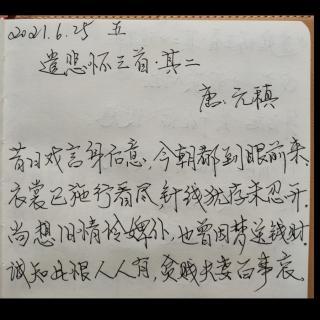 2021.6.25 五
遣悲怀三首·其二
唐·元稹
昔日戏言身后意,今朝都到眼前来.
衣裳已施行看尽,针线犹存未忍开.
尚想旧情怜婢仆,也曾因梦送钱财.
诚知此恨人人有,贫贱夫妻百事哀.